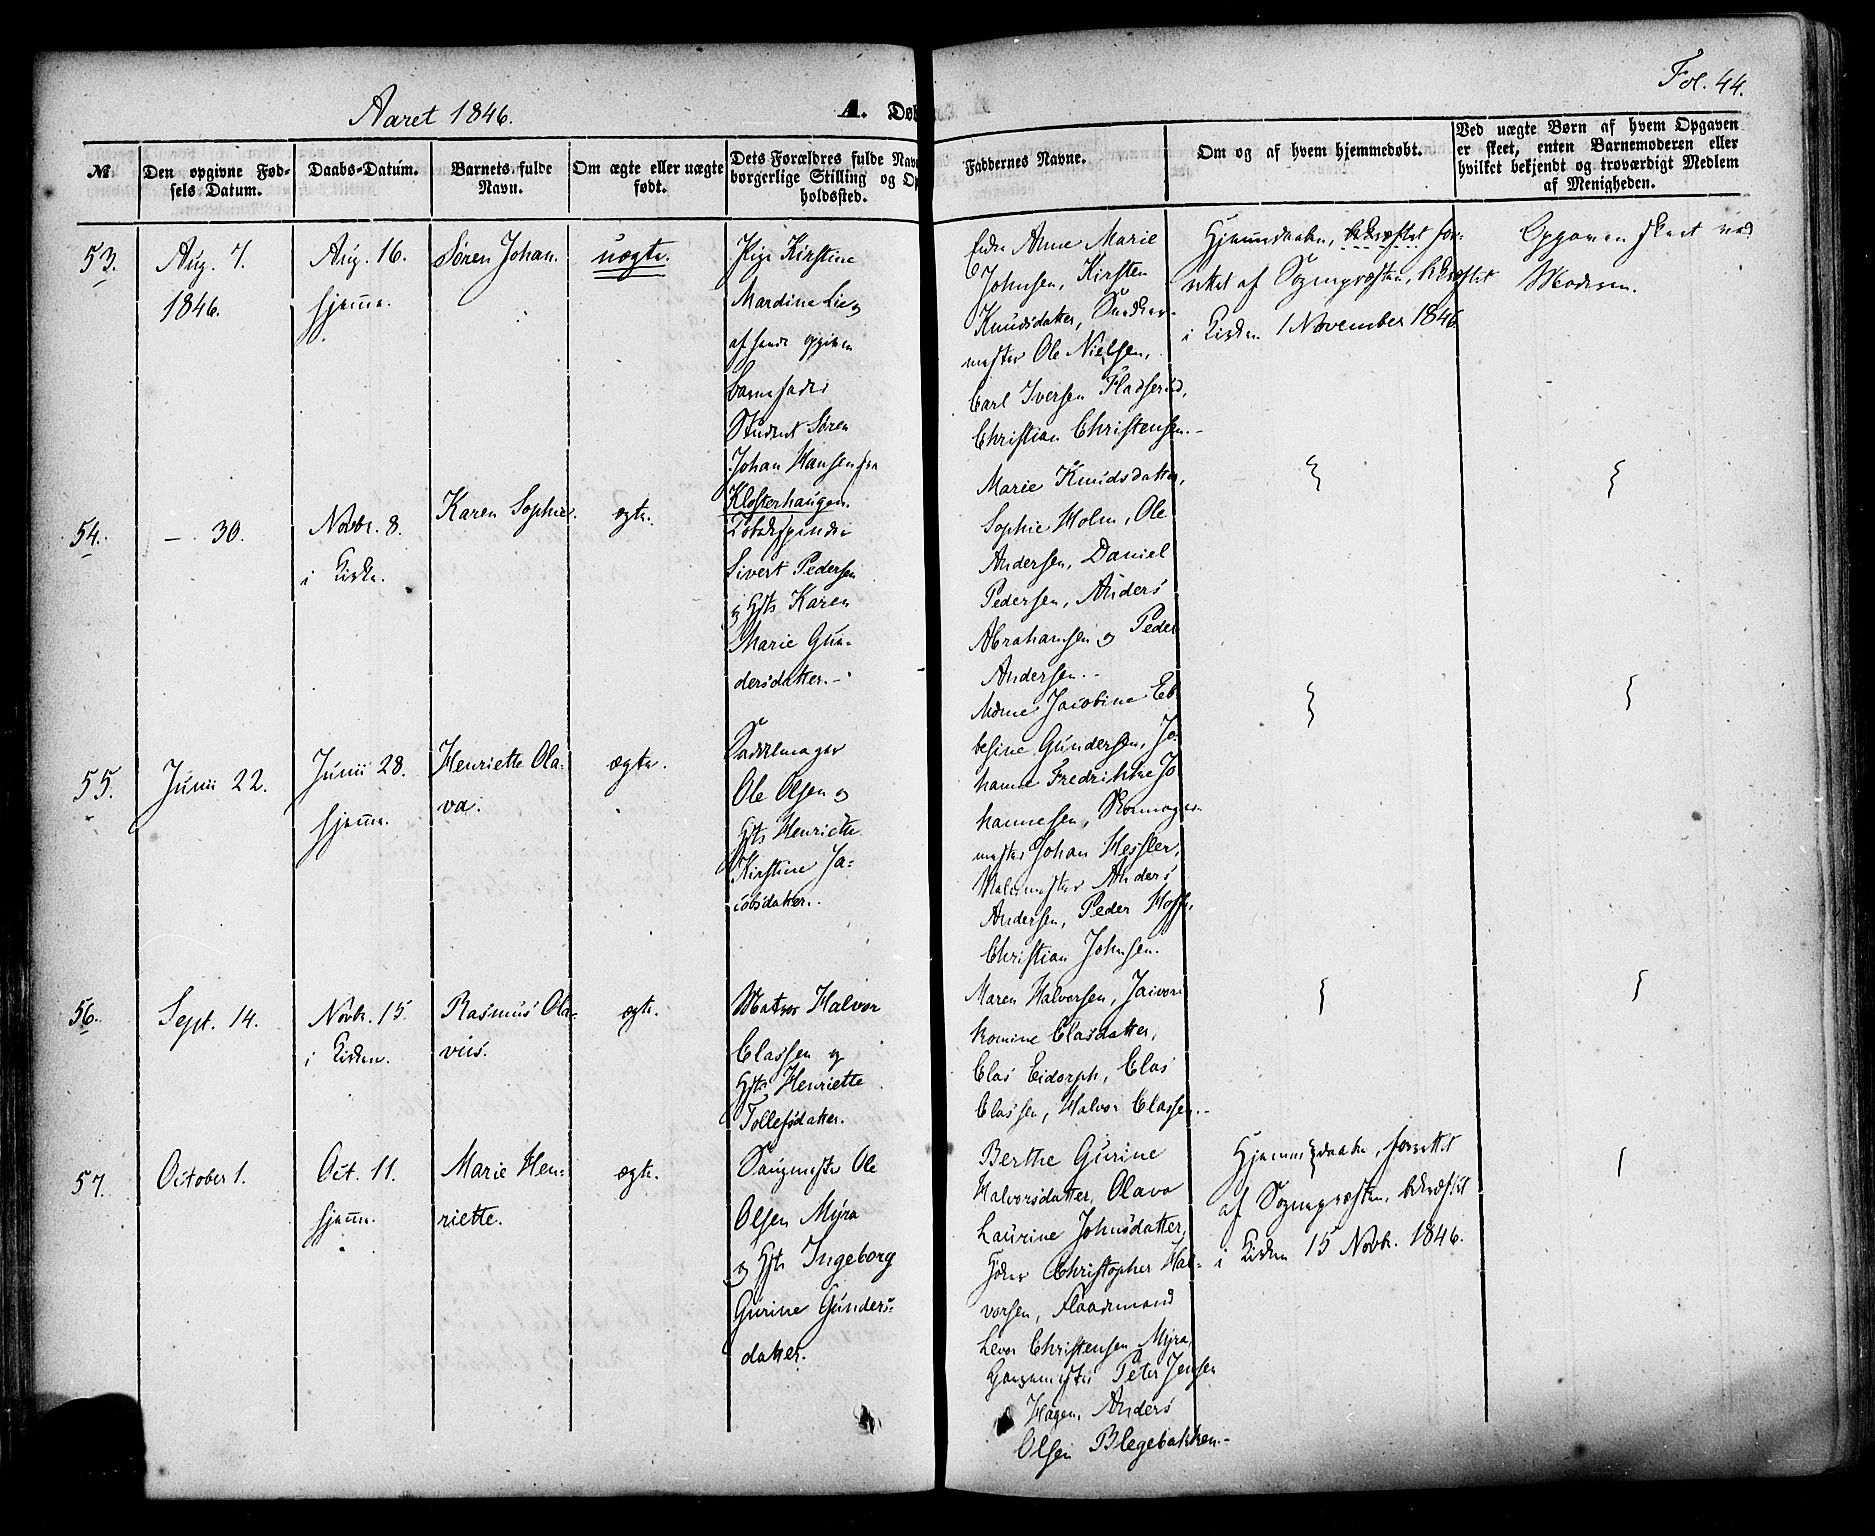 Fol. 44.
Aaret 1846.
A. Døb
№
Den opgivne Fød-
sels Datum.
Daabs-Datum.
Barnets fulde
Navn.
Om ægte eller uægte
født.
Dets Forældres fulde Nav
borgerlige Stilling og Op
holdssted.
Faddernes Navne.
Om og af hvem hjemmedøbt.
Ved uægte Børn af hvem Opgaven
er skeet, enten Barnemoderen eller
hvilket bekjendt og troværdigt Medlem
af Menigheden.
53.
Aug. 7.
1846.
Aug. 16.
hjemme.
Søren Johan.
uægte.
Pige Kirstine
Mardine Lie
af hende opgiven
Barnefader
Student Søren
Johan Hansen fra
Klosterhaugen.
Anne Marie
Johnsen, Kirsten
Knudsdatter, Snedker-
mester Ole Nielsen,
Carl Iversen Fladserød,
Christian Christensen.-
Hjemmedaaben, bekræftet for-
rettet af Sognepræsten, bekræftet
i Kirken 1 November 1846.
Opgaven skeet ved
Moderen.
54.
- 30.
Novbr. 8.
i Kirken.
Karen Sophie.
ægte.
Tobakspinder
Sivert Pedersen
og Hst Karen
Marie Gun-
dersdatter.-
Marie Knudsdatter,
Sophie Holm, Ole
Andersen, Daniel
Pedersen, Anders
Abrahamsen og Peder
Andersen.-
55.
Junii 22.
Junii 28.
hjemme.
Henriette Ola-
va.
ægte.
Sadelmager
Ole Olsen og
Hst Henriette
Kirstine Ja-
cobsdatter.
Mdme Jacobine Eb
besine Gundersen, Jo-
hanne Fredrikke Jo
hannesen, Skomager-
mester Johan Hessler,
Malermester Anders
Andersen, Peder Hoff,
Christian Johnsen.
56.
Sept. 14.
Novbr. 15.
i Kirken.
Rasmus Ola-
vus.
ægte.
Matros Halvor
Classen og
Hst Henriette
Tollefsdatter.
Maren Halvorsen,
Romine Clasdatter,
Clas Eidorph, Clas
Classen, Halvor Classen.-
57.
October 1.
Oct. 11.
hjemme.
Marie Hen-
riette.
ægte.
Ole
Olsen Myra
og Hst Ingeborg
Gurine Gunders-
datter.
Berthe Gurine
Halvorsdatter, Olava
Laurine Johnsdatter,
Christopher Hal-
vorsen,
Levor Christensen Myra,
Peter Jensen
Hagen, Anders
Olsen Blegebakken.-
Hjemmedaaben, forrettet
af Sognepræsten, bekræftet
i Kirken 15 Novbr. 1846.